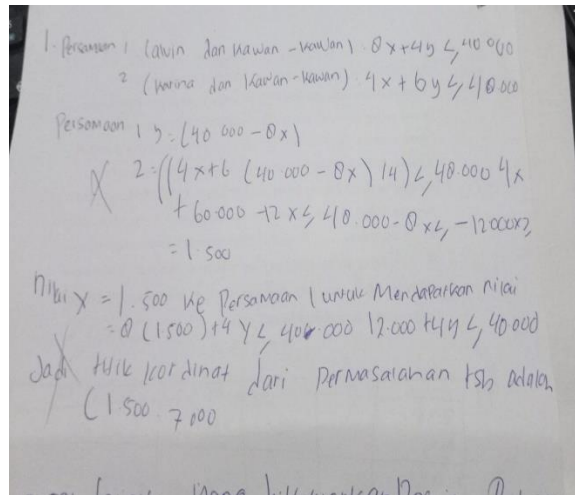 1. Persamaan 1 (awin dan kawan-kawan) 8x+4y ≤ 40 000
2 (karina dan kawan-kawan) 4x+6y ≤ 48.000
Persamaan 1 y = (40 000 - 8x)
2 = ((4x+6 (40 000 - 8x) /4) ≤ 48.000 4x
+ 60.000 - 12x ≤ 48.000 - 8x ≤ -12000x≥
= 1.500
nilai x = 1.500 ke Persamaan 1 untuk Mendapatkan nilai
= 8 (1.500) + 4y ≤ 40.000 12.000 + 4y ≤ 40.000
Jadi titik kordinat dari Permasalahan tsb adalah
(1.500. 7000